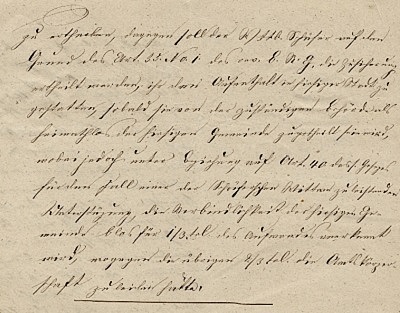 zu ertheilen, dagegen soll der Schäfer auf den
Grund des Art. 35. No 1 des rev. B. R. G. die Zusicherung
ertheilt werden, ihr den Aufenthalt in hiesiger Stadt zu
gestatten, sobald sie von der zuständigen Behörde als
heimathlos der hiesigen Gemeinde zugetheilt sein wird,
wobei jedoch unter Beziehung auf Art. 40 des Gesezes
für den Fall einer der Schäferschen Wittwe zu leistenden
Unterstüzung, die Verbindlichkeit der hiesigen Ge-
meinde blos für 1/3 tel. des Aufwandes anerkannt
wird, wogegen die übrigen 2/3 tel. die Amtskorper-
schaft zu leisten hätte.